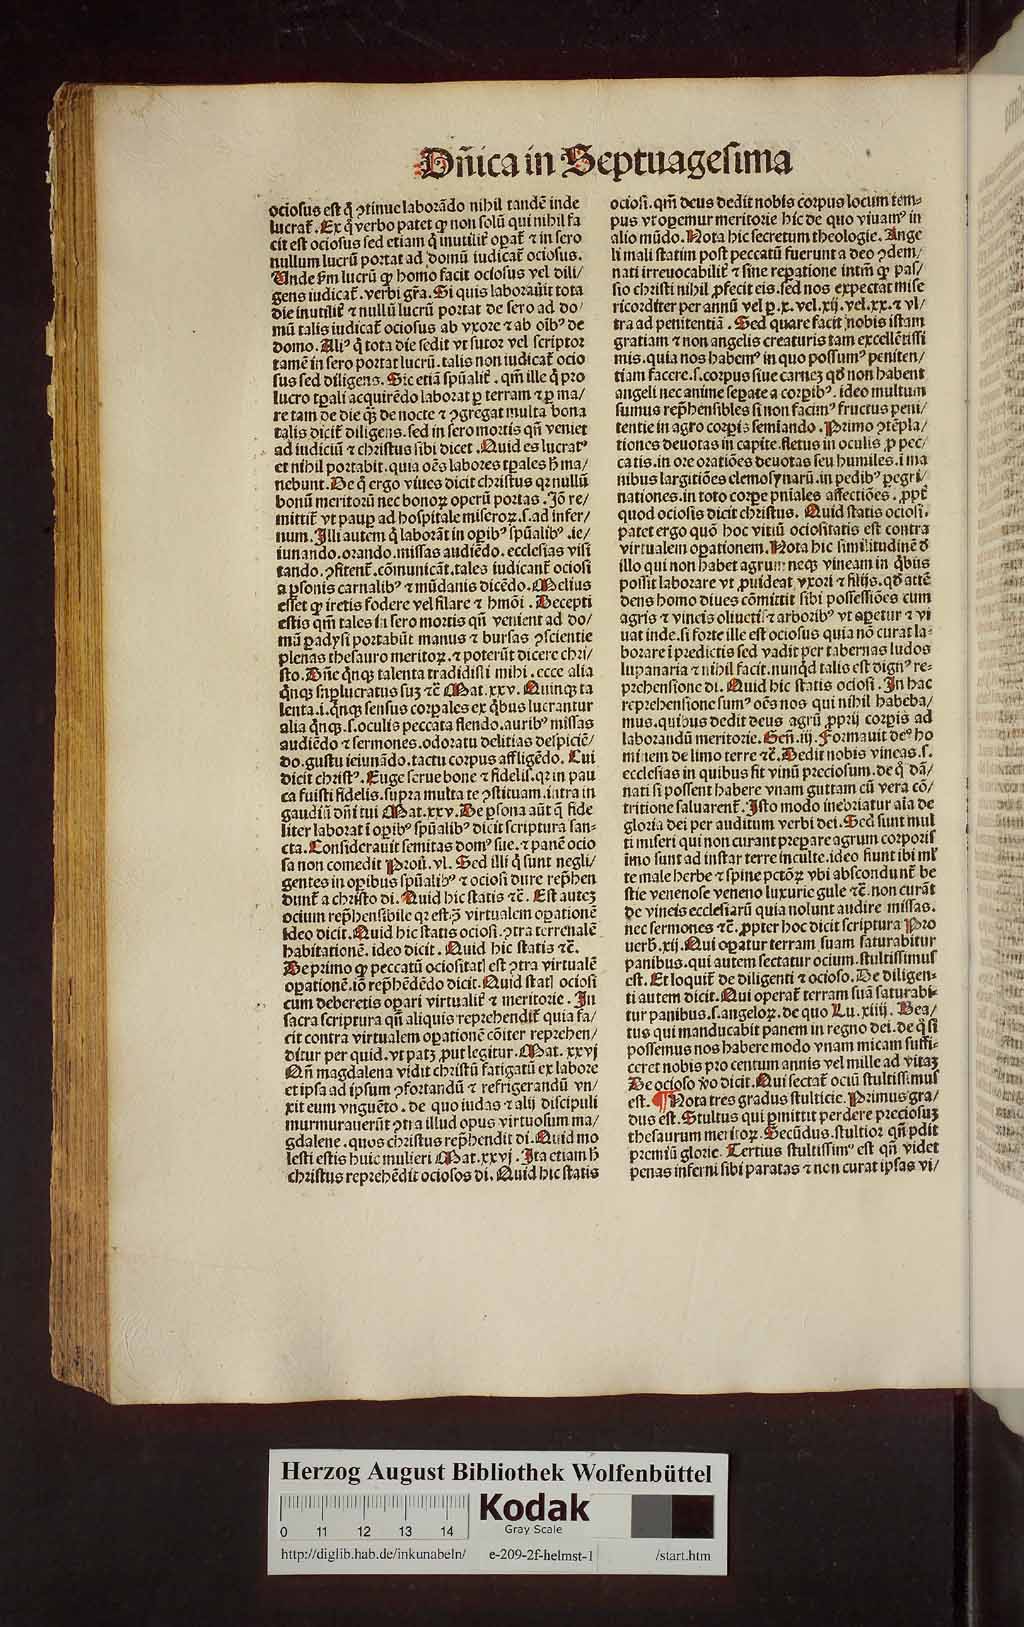 Dñica in Septuagesima
ociosus est q̃ ꝯtinue laborãdo nihil tandẽ inde
lucrat̃. Ex q̃ verbo patet ꝙ non solũ qui nihil fa
cit est ociosus sed etiam q̃ inutilit̃ oꝑat̃ ⁊ in sero
nullum lucrũ portat ad domũ iudicat̃ ociosus.
Unde ẽm lucrũ ꝙ homo facit ociosus vel dili/
gens iudicat̃. verbi gr̃a. Si quis laborau̾it tota
die inutilit̃ ⁊ nullũ lucrũ portat de sero ad do/
mũ talis iudicat̃ ociosus ab vxore ⁊ ab oĩbꝰ de
domo. Aliꝰ q̃ tota die sedit vt sutor vel scriptor
tamẽ in sero portat lucrũ. talis non iudicat̃ ocio
sus sed diligens. Sic etiã spũalit̃. qm̃ ille q̃ pro
lucro tꝑali acquirẽdo laborat ꝑ terram ⁊ ꝑ ma/
re tam de die qꝫ de nocte ⁊ ꝯgregat multa bona
talis dicit̃ diligens. sed in sero mortis qñ veniet
ad iudiciũ ⁊ christus sibi dicet. Quid es lucratꝰ
et nihil portabit. quia oẽs labores tꝑales h̃ ma/
nebunt. De q̃ ergo viues dicit christus qꝛ nullũ
bonũ meritorũ nec bonoꝝ operũ portas. Jõ re/
mittit̃ vt pauꝑ ad hospitale miseroꝝ. s. ad infer/
num. Illi autem q̃ laborãt in oꝑibꝰ spũalibꝰ. ie/
iunando. orando. missas audiẽdo. ecclesias visi
tando. ꝯfitent̃. cõmunicãt. tales iudicant̃ ociosi
a ꝑsonis carnalibꝰ ⁊ mũdanis dicẽdo. Melius
esset ꝙ iretis fodere vel filare ⁊ hmõi. Decepti
estis qm̃ tales in sero mortis qñ venient ad do/
mũ ꝑadysi portabũt manus ⁊ bursas ꝯscientie
plenas thesauro meritoꝝ. ⁊ poterũt dicere chri/
sto. Dñe q̃nqꝫ talenta tradidisti mihi. ecce alia
q̃nqꝫ suꝑlucratus suꝫ ⁊c̃ Mat. xxv. Quinqꝫ ta
lenta. i. q̃nqꝫ sensus corꝑales ex q̃bus lucrantur
alia q̃nqꝫ. s. oculis peccata flendo. auribꝰ missas
audiẽdo ⁊ sermones. odoratu delitias despiciẽ/
do. gustu ieiunãdo. tactu corpus affligẽdo. Cui
dicit christꝰ. Euge serue bone ⁊ fidelis. qꝛ in pau
ca fuisti fidelis. supra multa te ꝯstituam. intra in
gaudiũ dñi tui Mat. xxv. De ꝑsona aũt q̃ fide
liter laborat i oꝑibꝰ spũalibꝰ dicit scriptura san-
cta. Considerauit semitas domꝰ sue. ⁊ panẽ ocio
sa non comedit Prou̾. vl. Sed illi q̃ sunt negli/
gentes in oꝑibus spũalibꝰ ⁊ ociosi dure rep̃hen
dunt̃ a christo di. Quid hic statis ⁊c̃. Est auteꝫ
ocium rep̃hensibile qꝛ est ꝯ̃ virtualem oꝑationẽ
ideo dicit. Quid hic statis ociosi. ꝯtra terrenalẽ
habitationẽ. ideo dicit. Quid hic statis ⁊c̃.
De primo ꝙ peccatũ ociositatꝭ est ꝯtra virtualẽ
oꝑationẽ. iõ rep̃hẽdẽdo dicit. Quid statꝭ ociosi
cum deberetis oꝑari virtualit̃ ⁊ meritorie. In
sacra scriptura qñ aliquis reprehendit̃ quia fa/
cit contra virtualem oꝑationẽ cõiter reprehen/
ditur per quid. vt patꝫ ꝓut legitur. Mat. xxvj
Qñ magdalena vidit christũ fatigatũ ex labore
et ipsa ad ipsum ꝯfortandũ ⁊ refrigerandũ vn/
xit eum vnguẽto. de quo iudas ⁊ alij discipuli
murmurauerũt ꝯtra illud opus virtuosum ma/
gdalene. quos christus rep̃hendit di. Quid mo
lesti estis huic mulieri Mat. xxvj. Ita etiam h̃
christus reprehẽdit ociosos di. Quid hic statis
ociosi. qm̃ deus dedit nobis corpus locum tem-
pus vt oꝑemur meritorie hic de quo viuamꝰ in
alio mũdo. Nota hic secretum theologie. Ange
li mali statim post peccatũ fuerunt a deo ꝯdem/
nati irreuocabilit̃ ⁊ sine reꝑatione intm̃ ꝙ pas/
sio christi nihil ꝓfecit eis. sed nos expectat mise
ricorditer per annũ vel ꝑ. x. vel. xij. vel. xx. ⁊ vl/
tra ad penitentiã. Sed quare facit nobis istam
gratiam ⁊ non angelis creaturis tam excellẽtissi
mis. quia nos habemꝰ in quo possumꝰ peniten/
tiam facere. s. corpus siue carneꝫ qđ non habent
angeli nec anime seꝑate a corꝑibꝰ. ideo multum
sumus rep̃hensibles si non facimꝰ fructus peni/
tentie in agro corꝑis semiando. Primo ꝯtẽpla/
tiones deuotas in capite. fletus in oculis ꝓ pec/
catis. in ore oratiões deuotas seu humiles. i ma
nibus largitiões elemosynarũ. in pedibꝰ ꝑegri/
nationes. in toto corꝑe pñiales affectiões. ꝓpt̃
quod ociosis dicit christus. Quid statis ociosi.
patet ergo quõ hoc vitiũ ociositatis est contra
virtualem oꝑationem. Nota hic similitudinẽ đ
illo qui non habet agrum neqꝫ vineam in q̃bus
possit laborare vt ꝓuideat vxori ⁊ filijs. qđ attẽ
dens homo diues cõmittit sibi possessiões cum
agris ⁊ vineis oliuetis ⁊ arboribꝰ vt oꝑetur ⁊ vi
uat inde. si forte ille est ociosus quia nõ curat la-
borare i predictis sed vadit per tabernas ludos
lupanaria ⁊ nihil facit. nunq̃d talis est dignꝰ re-
prehensione di. Quid hic statis ociosi. In hac
reprehensione sumꝰ oẽs nos qui nihil habeba/
mus. quibus dedit deus agrũ ꝓprij corꝑis ad
laborandũ meritorie. Geñ. iij. Formauit deꝰ ho
minem de limo terre ⁊c̃. Dedit nobis vineas. s.
ecclesias in quibus fit vinũ preciosum. de q̃ dã/
nati si possent habere vnam guttam cũ vera cõ/
tritione saluarent̃. Isto modo inebriatur aĩa de
gloria dei per auditum verbi dei. Sed sunt mul
ti miseri qui non curant preꝑare agrum corporis
imo sunt ad instar terre inculte. ideo fiunt ibi ml̃
te male herbe ⁊ spine pctõꝝ vbi abscondunt̃ be
stie venenose veneno luxurie gule ⁊c̃. non curãt
de vineis ecclesiarũ quia nolunt audire missas.
nec sermones ⁊c̃. ꝓpter hoc dicit scriptura Pro
uerb̾. xij. Qui oꝑatur terram suam saturabitur
panibus. qui autem sectatur ocium. stultissimus
est. Et loquit̃ de diligenti ⁊ ocioso. De diligen-
ti autem dicit. Qui operat̃ terram suã saturabi-
tur panibus. s. angeloꝝ. de quo Lu. xiiij. Bea/
tus qui manducabit panem in regno dei. de q̃ si
possemus nos habere modo vnam micam suffi-
ceret nobis pro centum annis vel mille ad vitaꝫ
De ocioso ṽo dicit. Qui sectat̃ ociũ stultissimus
est. ¶ Nota tres gradus stulticie. Primus gra/
dus est. Stultus qui ꝑmittit perdere preciosuꝫ
thesaurum meritoꝝ. Secũdus. stultior qñ ꝑdit
premiũ glorie. Tertius stultissimꝰ est qñ videt
penas inferni sibi paratas ⁊ non curat ipsas vi/
Herzog August Bibliothek Wolfenbüttel
Kodak
Gray Scale
0 11 12 13 14
http://diglib.hab.de/inkunabeln/ e-209-2f-helmst-1 /start.htm